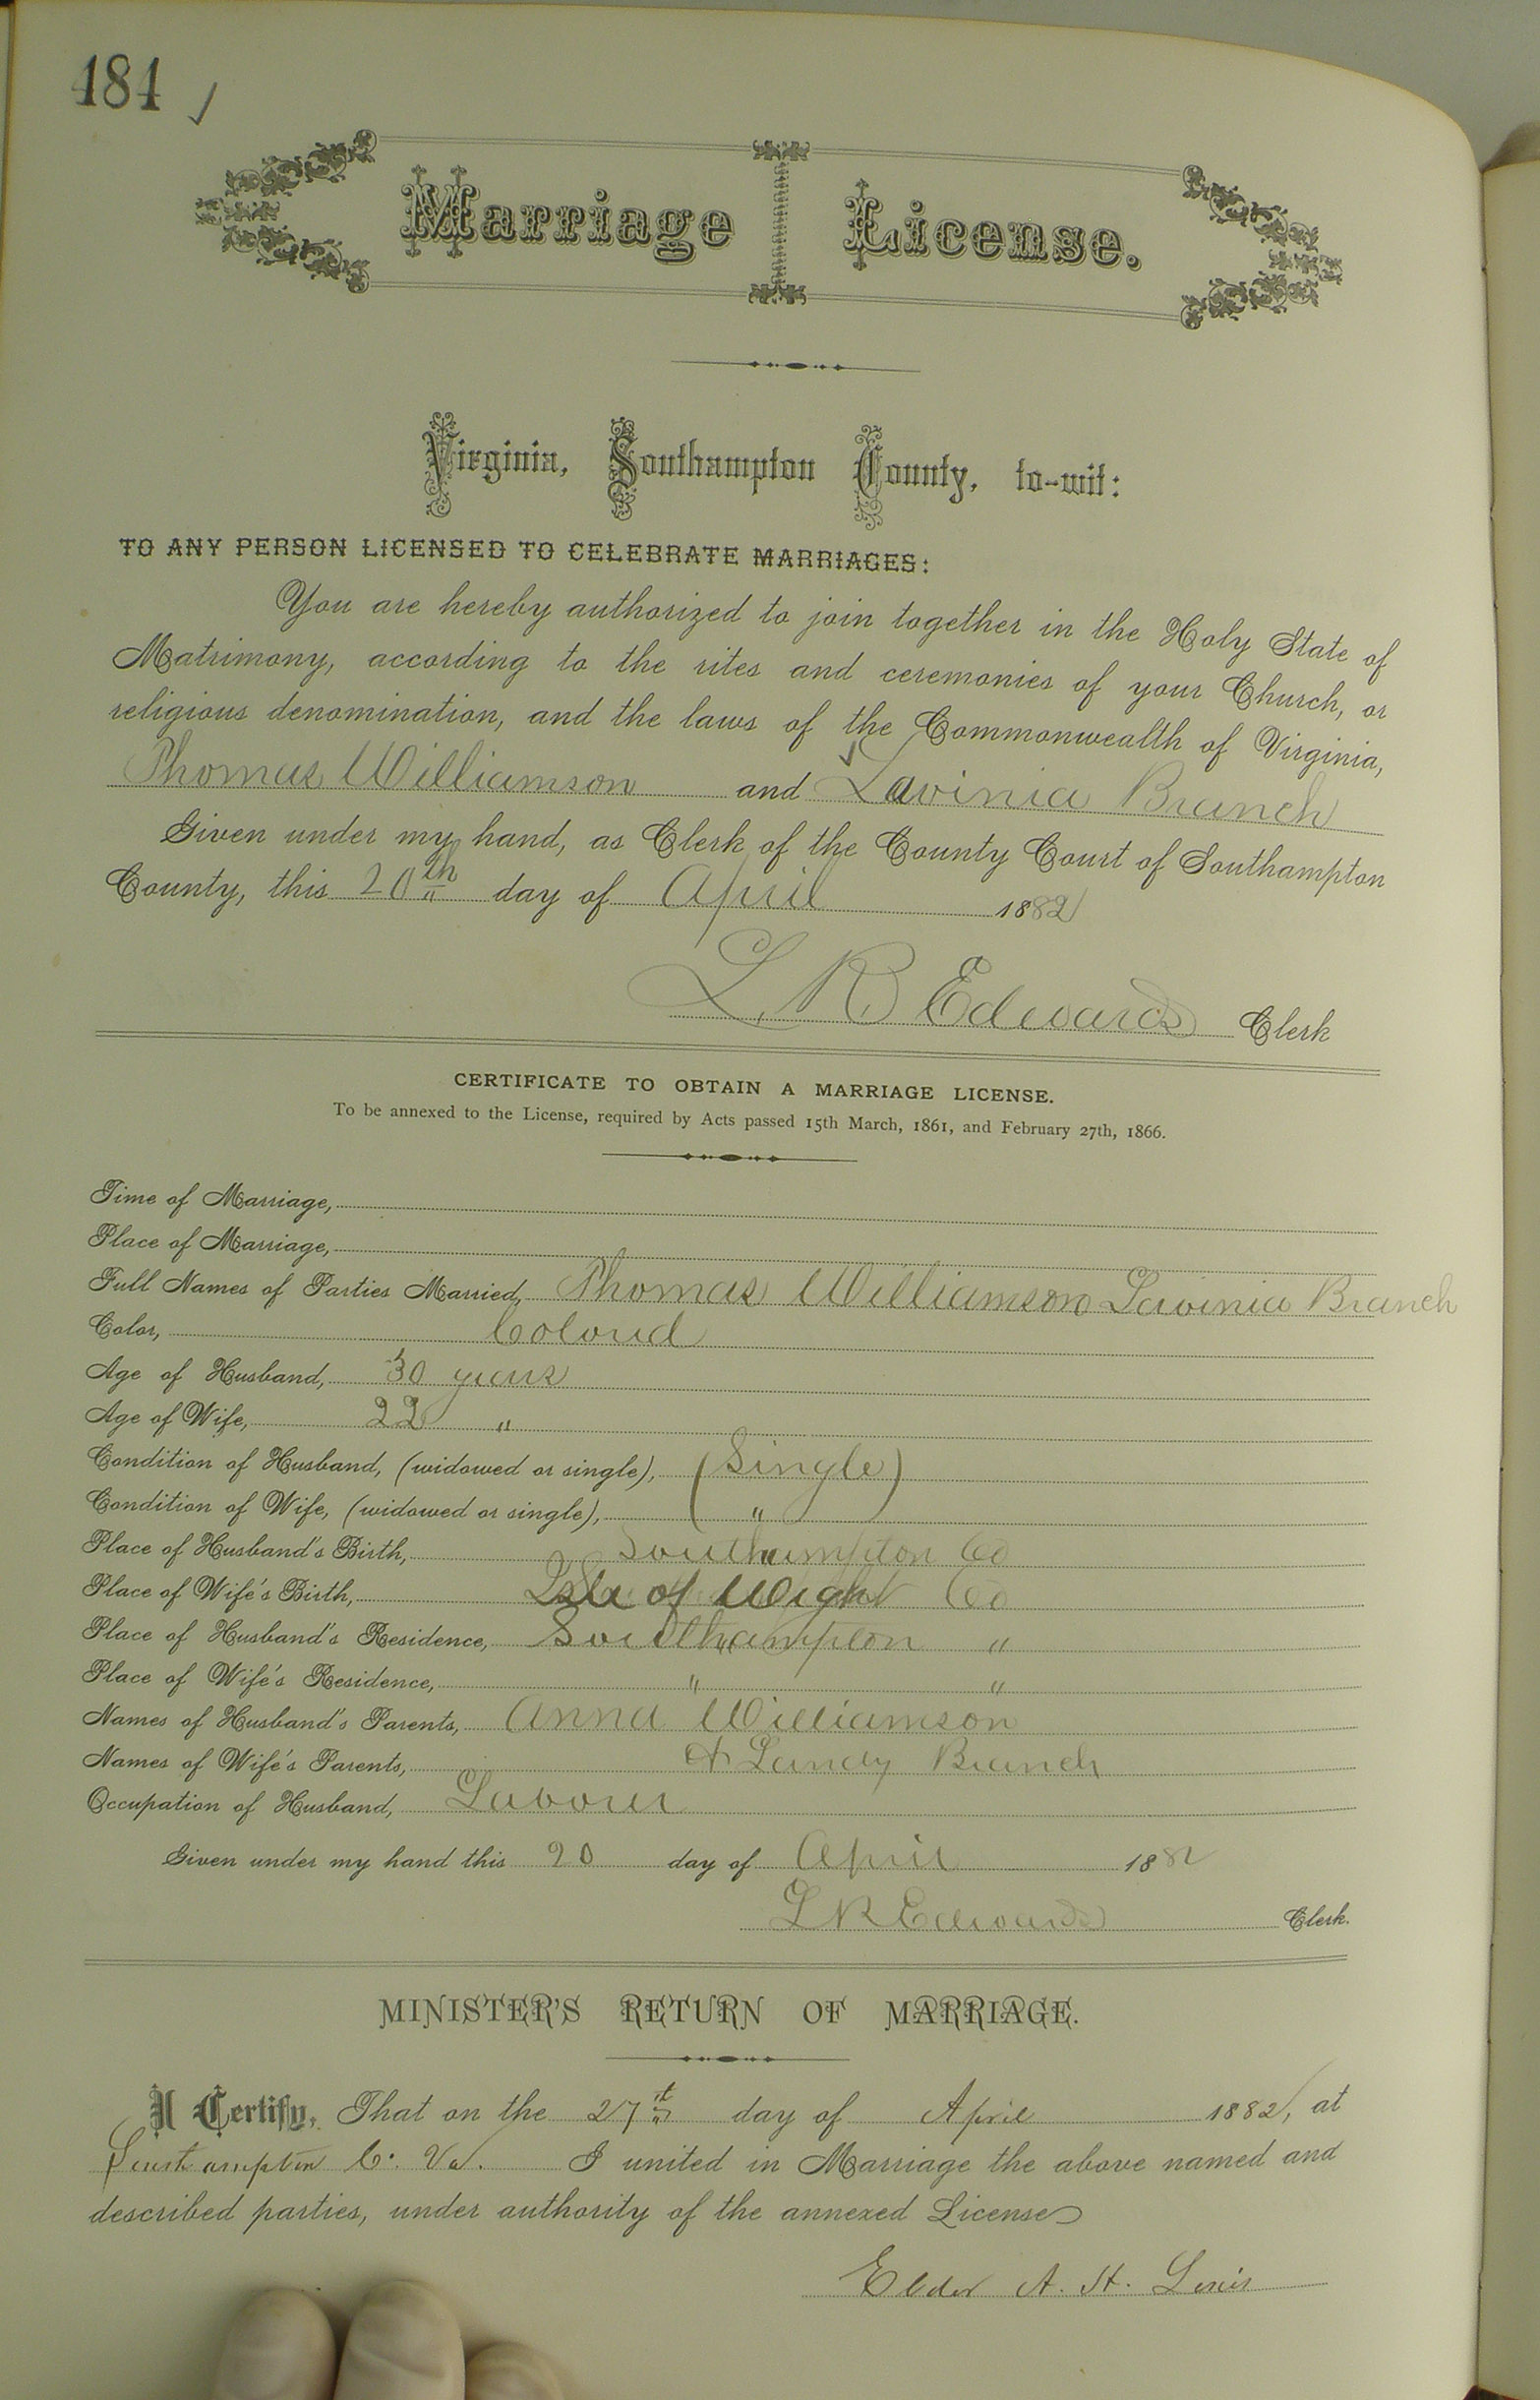 484 ✓
Marriage License.
Virginia, Southampton County, to-wit:
TO ANY PERSON LICENSED TO CELEBRATE MARRIAGES:
You are hereby authorized to join together in the Holy State of
Matrimony, according to the rites and ceremonies of your Church, or
religious denomination, and the laws of the Commonwealth of Virginia,
Thomas Williamson and Lavinia Branch
Given under my hand, as Clerk of the County Court of Southampton
County, this 20th day of April 1882
L R Edwards Clerk
CERTIFICATE TO OBTAIN A MARRIAGE LICENSE.
To be annexed to the License, required by Acts passed 15th March, 1861, and February 27th, 1866.
Time of Marriage,
Place of Marriage,
Full Names of Parties Married, Thomas Williamson Lavinia Branch
Color, Colored
Age of Husband, 30 years
Age of Wife, 22 "
Condition of Husband, (widowed or single), (Single)
Condition of Wife, (widowed or single), "
Place of Husband's Birth, Southampton Co
Place of Wife's Birth, Isle of Wight Co
Place of Husband's Residence, Southampton "
Place of Wife's Residence, " "
Names of Husband's Parents, Anna Williamson
Names of Wife's Parents, Branch
Occupation of Husband, Laborer
Given under my hand this 20 day of April 1882
L R Edwards Clerk.
MINISTER'S RETURN OF MARRIAGE.
I Certify, That on the 27th day of April 1882, at
Southampton Co. Va. I united in Marriage the above named and
described parties, under authority of the annexed License
Elder A. H. Lewis